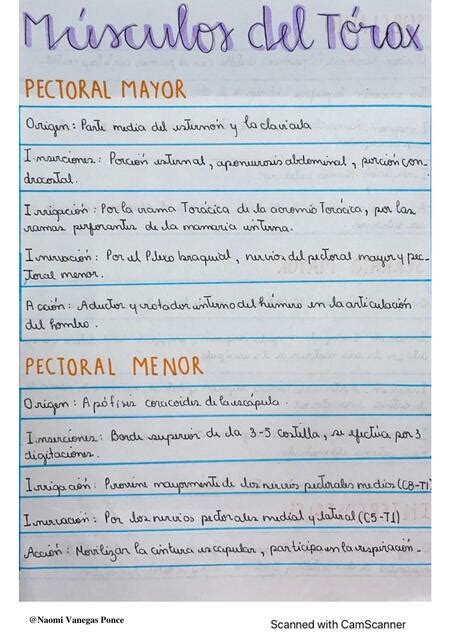 Músculos del Tórax
PECTORAL MAYOR
Origen: Parte media del esternón y la clavícula
Inserciones: Porción esternal, aponeurosis abdominal, porción con-
drocostal.
Irrigación: Por la rama Torácica de la acromio Torácica, por las
ramas perforantes de la mamaria interna.
Inervación: Por el Plexo braquial, nervios del pectoral mayor y pec-
toral menor.
Acción: Aductor y rotador interno del húmero en la articulación
del hombro.
PECTORAL MENOR
Origen: Apófisis coracoides de la escápula.
Inserciones: Borde superior de la 3-5 costilla, se efectúa por 3
digitaciones.
Irrigación: Proviene mayormente de los nervios pectorales medios (C8-T1)
Inervación: Por los nervios pectorales medial y lateral (C5-T1)
Acción: Movilizar la cintura escapular, participa en la respiración.
@Naomi Vanegas Ponce
Scanned with CamScanner